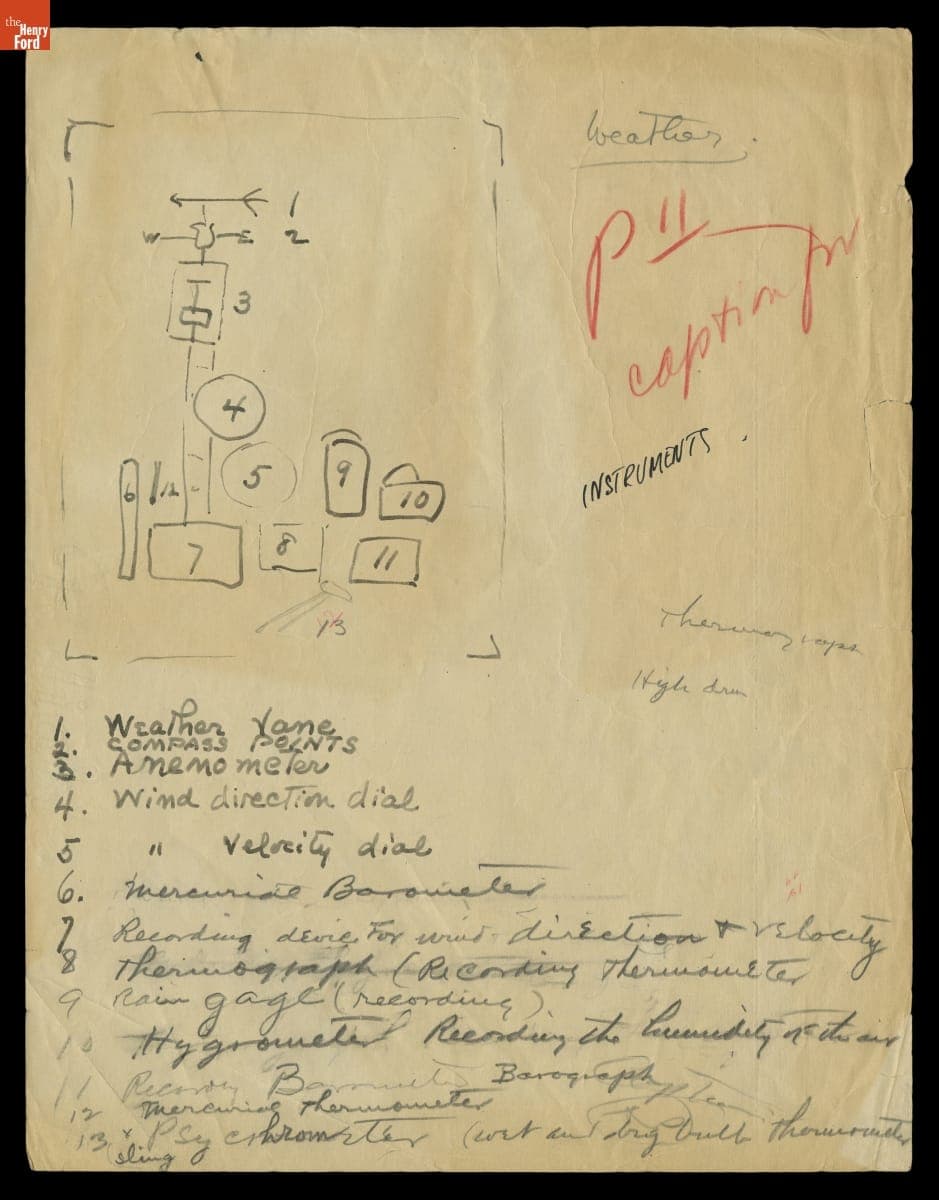 the
Henry
Ford
Weather.
P 11
caption for
INSTRUMENTS.
1
W E 2
3
4
5
6 12
7
8
9
10
11
13
High
1. Weather Vane
2. COMPASS POINTS
3. Anemometer
4. Wind direction dial
5 " Velocity dial
6. Mercurial Barometer
7 Recording device For wind direction + velocity
8 Thermograph (Recording Thermometer
9 Rain gage (recording)
10 Hygrometer Recording the humidity of the air
11 Recording Barometer Barograph
12 Mercurial Thermometer
13 x Psychrometer (wet and dry bulb Thermometer
(sling